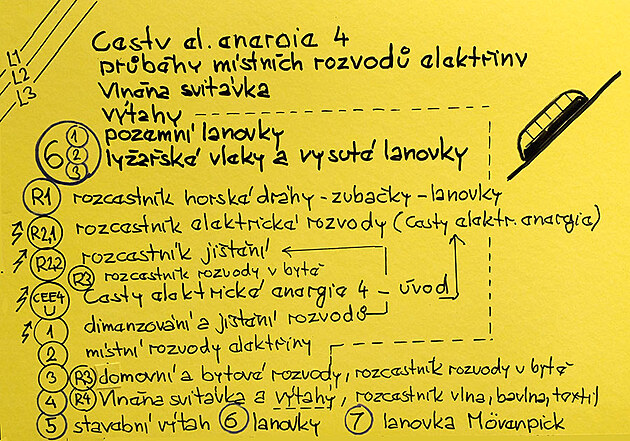 L1
L2
L3
Casty al. anargia 4
průbáhy místních rozvodů alaktřiny
vlnána svitávka
výtahy
6 1 2 3 pozamní lanovky
lyžařská vlaky a vysutá lanovky
R1 rozcastník horská dráhy - zubačky - lanovky
R2,1 rozcastník alaktrická rozvody (casty alaktr. anargia)
R2,2 rozcastník jištání
R3 rozcastník rozvody v bytá
CEE4U Casty alaktrická anargia 4 - úvod
1 dimanzování a jištání rozvodů
2 místní rozvody alaktřiny
3 R3 domovní a bytová rozvody, rozcastník rozvody v bytá
4 R4 Vlnána svitávka a výtahy, rozcastník vlna, bavlna, textil
5 stavabní výtah 6 lanovky 7 lanovka Mövanpick